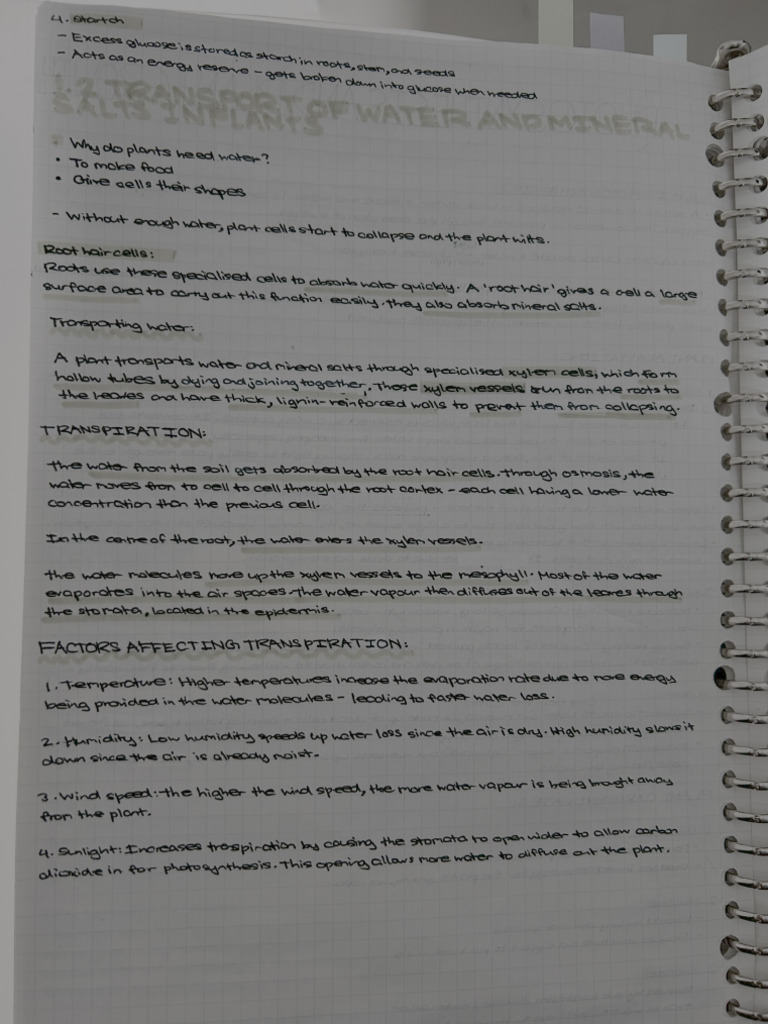 4. Startch
- Excess glucose is stored as starch in roots, stem, and seeds
- Acts as an energy reserve - gets broken down into glucose when needed
1.2 TRANSPORT OF WATER AND MINERAL
SALTS IN PLANTS
• Why do plants need water?
• To make food
• Give cells their shapes
- Without enough water, plant cells start to collapse and the plant wilts.
Root hair cells:
Roots use these specialised cells to absorb water quickly. A 'root hair' gives a cell a large
surface area to carry out this function easily. They also absorb mineral salts.
Transporting water:
A plant transports water and mineral salts through specialised xylem cells, which form
hollow tubes by dying and joining together. These xylem vessels run from the roots to
the leaves and have thick, lignin-reinforced walls to prevent them from collapsing.
TRANSPIRATION:
The water from the soil gets absorbed by the root hair cells. Through osmosis, the
water moves from to cell to cell through the root cortex - each cell having a lower water
concentration than the previous cell.
In the centre of the root, the water enters the xylem vessels.
The water molecules move up the xylem vessels to the mesophyll. Most of the water
evaporates into the air spaces. The water vapour then diffuses out of the leaves through
the stomata, located in the epidermis.
FACTORS AFFECTING TRANSPIRATION:
1. Temperature: Higher temperatures increase the evaporation rate due to more energy
being provided in the water molecules - leading to faster water loss.
2. Humidity: Low humidity speeds up water loss since the air is dry. High humidity slows it
down since the air is already moist.
3. Wind speed: the higher the wind speed, the more water vapour is being brought away
from the plant.
4. Sunlight: Increases transpiration by causing the stomata to open wider to allow carbon
dioxide in for photosynthesis. This opening allows more water to diffuse out the plant.